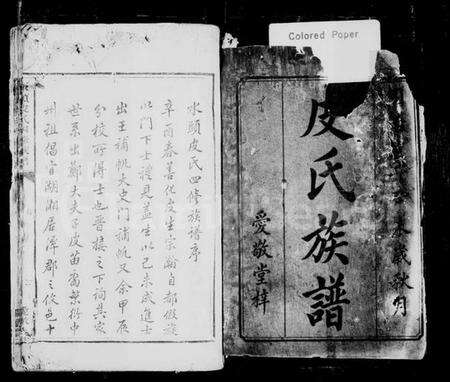 Colored Paper
皮氏族譜
歲秋月
愛敬堂梓
水頭皮氏四修族譜序
辛酉春善化皮生宗翰自都假旋
以門下士禮見益生以己未成進士
出王補帆大史門補帆又余甲辰
分校所得士也晉接之下詢其家
世系出鄭大夫子皮苗裔梨衍中
州祖倡官湖湘居潭郡之攸邑十